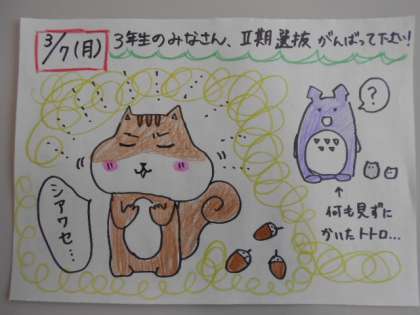 3/7(月)
3年生のみなさん、Ⅱ期選抜 がんばって下さい!
?
シアワセ…
↑
何も見ずに
かいたトトロ…